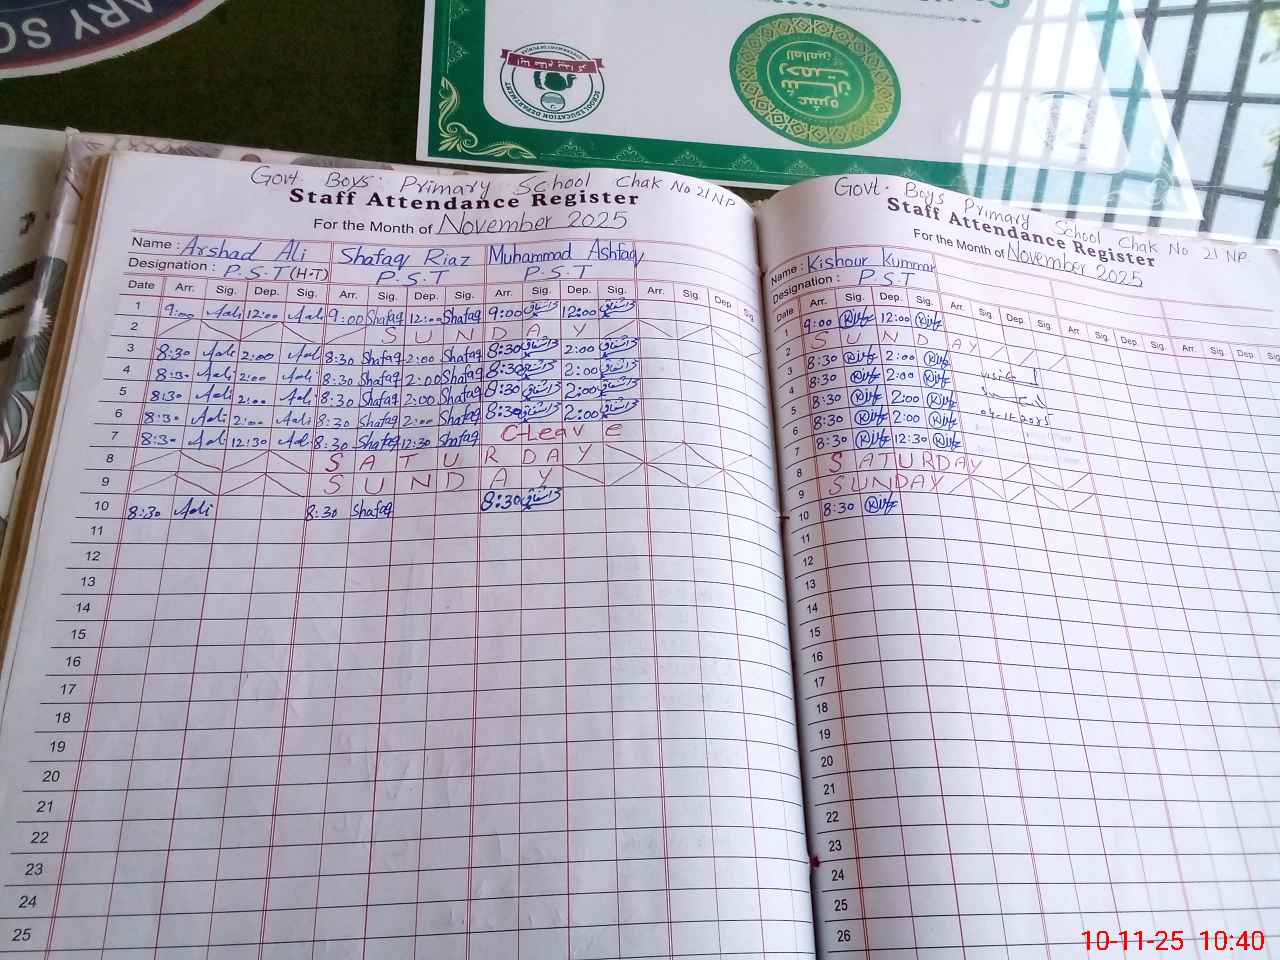 ARY SC
SCHOOL EDUCATION DEPARTMENT
عشرہ
شان
رحمت
للعالمین
Govt. Boys Primary School Chak No 21 NP
Staff Attendance Register
For the Month of November 2025
Name : Arshad Ali Shafaq Riaz Muhammad Ashfaq
Designation : P.S.T (H-T) P.S.T P.S.T
Date Arr. Sig. Dep. Sig. Arr. Sig. Dep. Sig. Arr. Sig. Dep. Sig. Arr. Sig. Dep. Sig.
1 9:00 Aali 12:00 Aali 9:00 Shafaq 12:00 Shafaq 9:00 12:00
2 SUNDAY
3 8:30 Aali 2:00 Aali 8:30 Shafaq 2:00 Shafaq 8:30 2:00
4 8:30 Aali 2:00 Aali 8:30 Shafaq 2:00 Shafaq 8:30 2:00
5 8:30 Aali 2:00 Aali 8:30 Shafaq 2:00 Shafaq 8:30 2:00
6 8:30 Aali 2:00 Aali 8:30 Shafaq 2:00 Shafaq 8:30 2:00
7 8:30 Aali 12:30 Aali 8:30 Shafaq 12:30 Shafaq C-Leave
8 SATURDAY
9 SUNDAY
10 8:30 Aali 8:30 Shafaq 8:30
11
12
13
14
15
16
17
18
19
20
21
22
23
24
25
Govt. Boys Primary School Chak No. 21 NP.
Staff Attendance Register
For the Month of November 2025
Name : Kishour Kummar
Designation : P.S.T
Date Arr. Sig. Dep. Sig. Arr. Sig. Dep. Sig. Arr. Sig. Dep. Sig. Arr. Sig. Dep. Sig.
1 9:00 12:00
2 SUNDAY
3 8:30 2:00
4 8:30 2:00
5 8:30 2:00
6 8:30 2:00
7 8:30 12:30
8 SATURDAY
9 SUNDAY
10 8:30
11
12
13
14
15
16
17
18
19
20
21
22
23
24
25
26
10-11-25 10:40